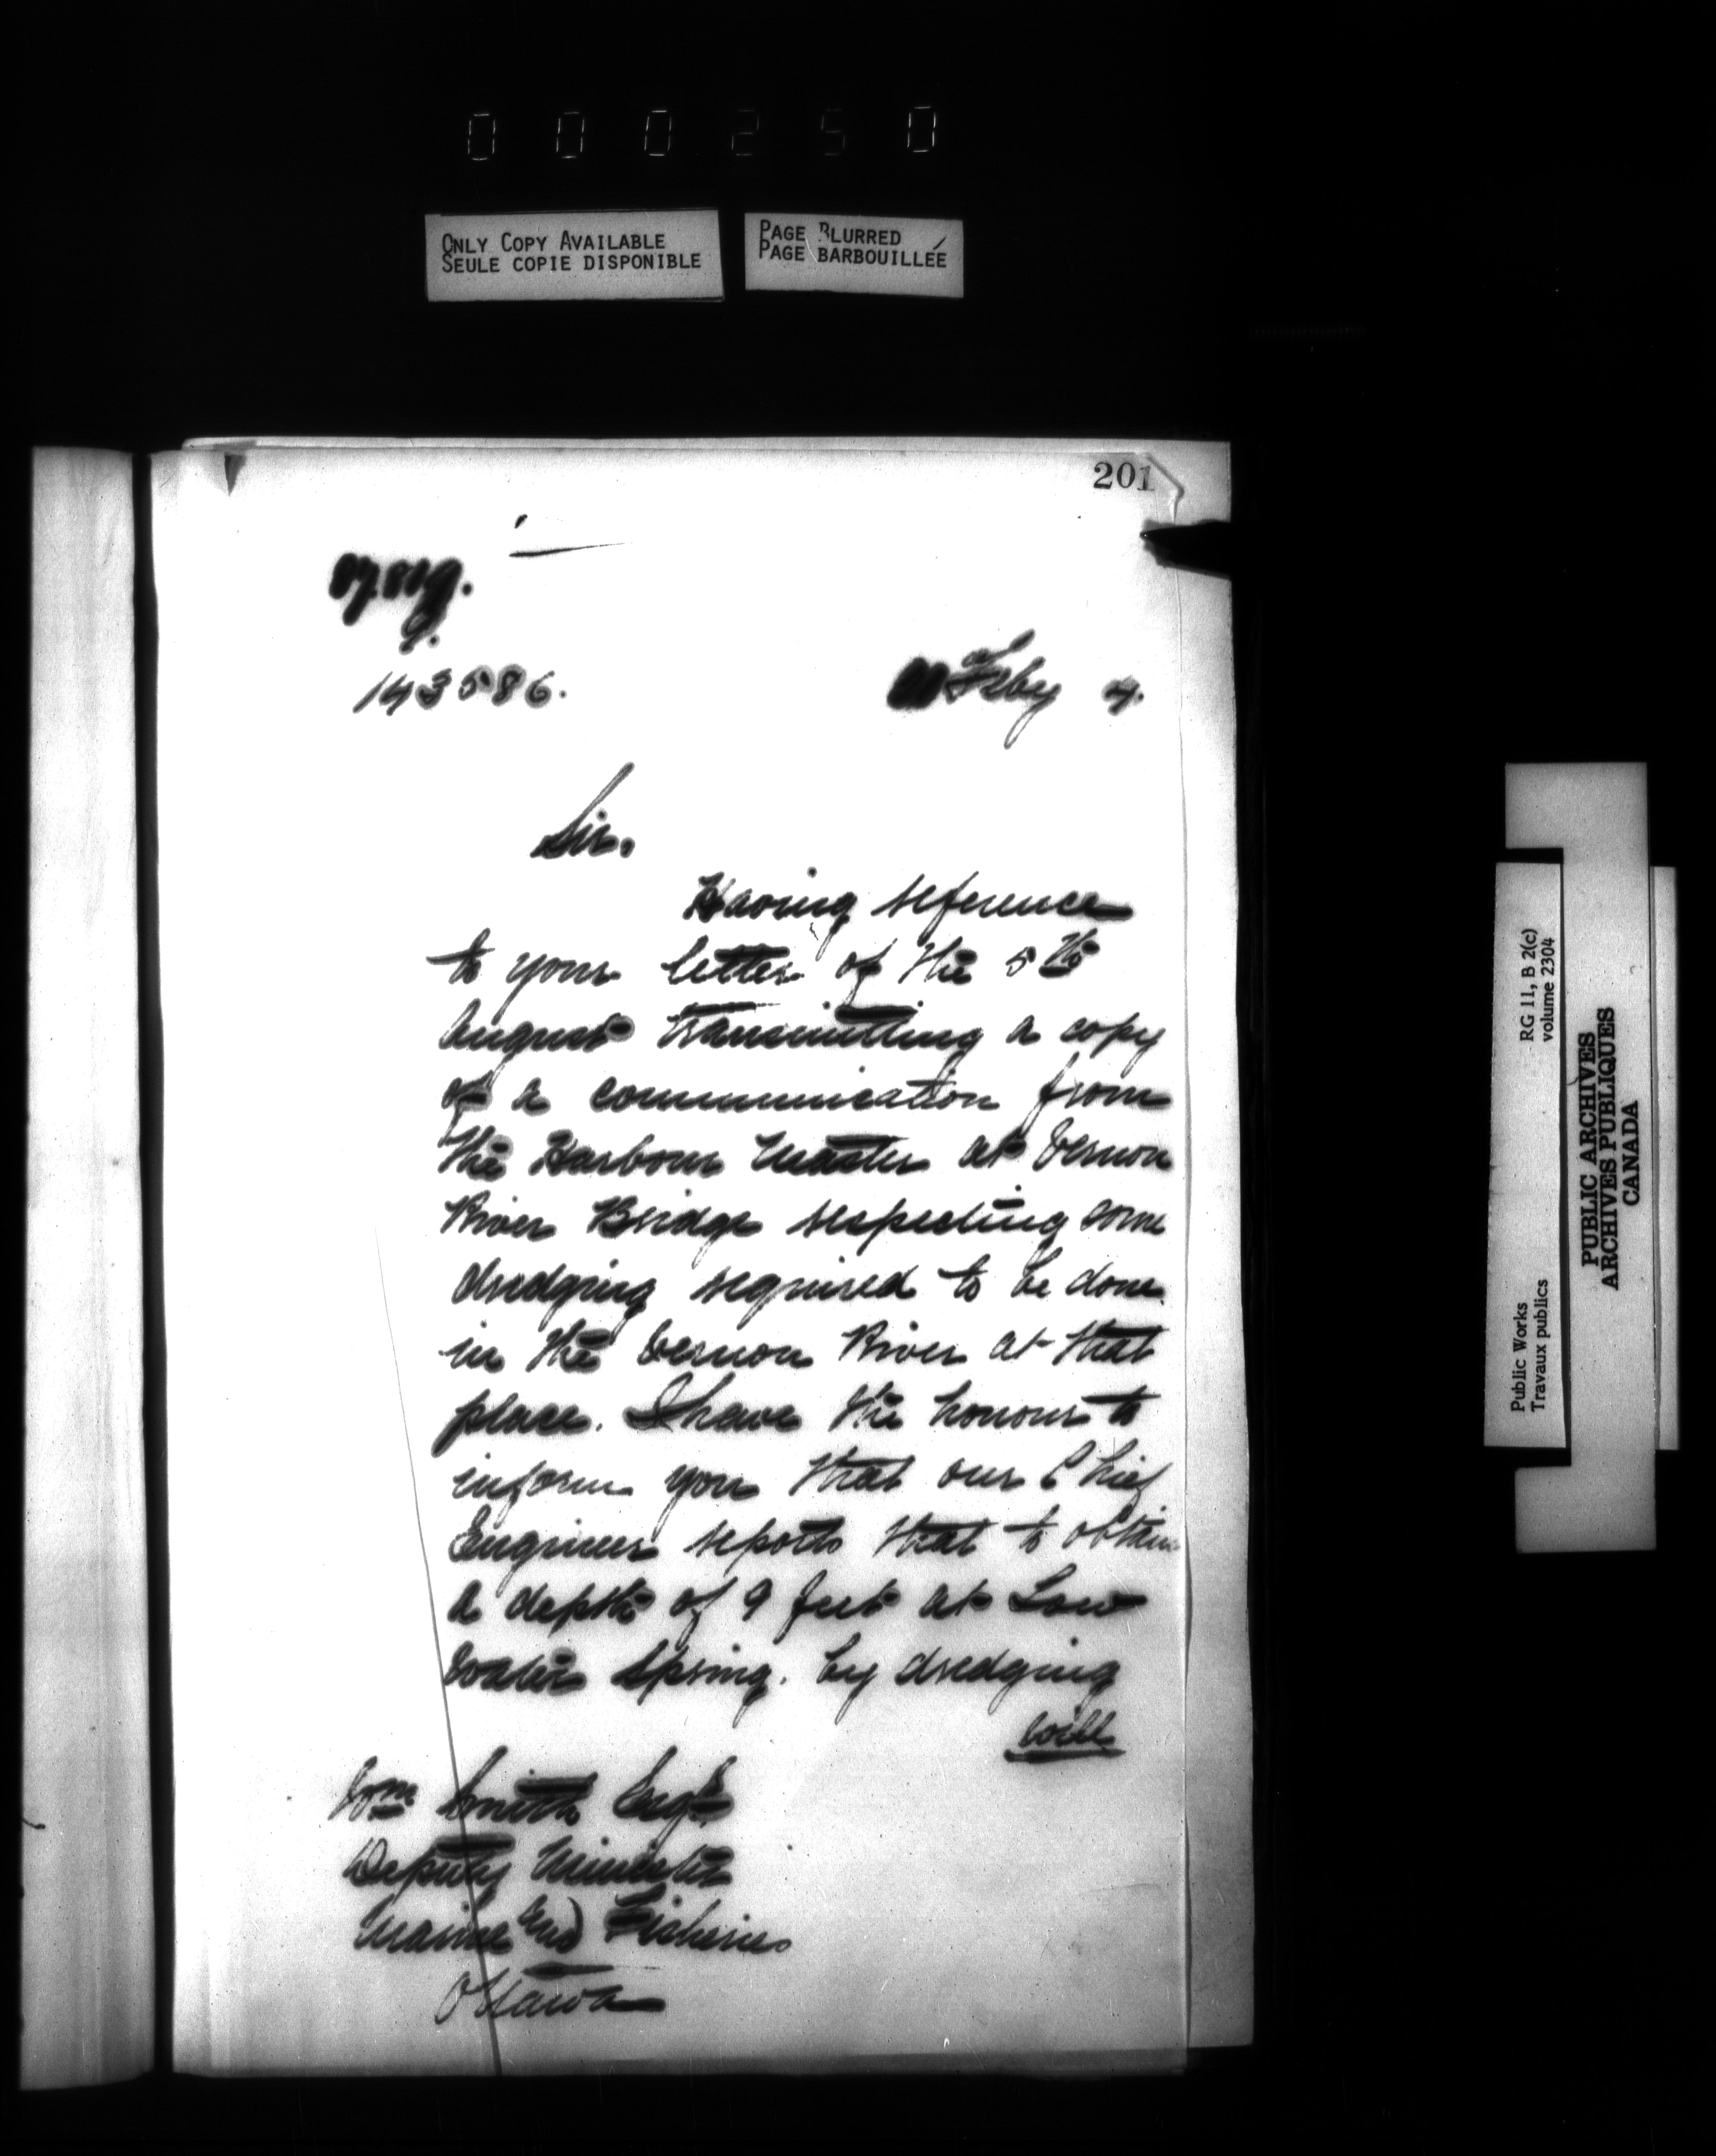 000250
ONLY COPY AVAILABLE
SEULE COPIE DISPONIBLE
PAGE BLURRED
PAGE BARBOUILLÉE
201
143586.
Feby 4.
Sir,
Having reference
to your letter of the 5th
August transmitting a copy
of a communication from
the Harbour Master at Vernon
River Bridge respecting some
dredging required to be done
in the Vernon River at that
place. I have the honour to
inform you that our Chief
Engineer reports that to obtain
a depth of 9 feet at Low
Water Spring. by dredging
will
Wm Smith Esqr
Deputy Minister
Marine and Fisheries
Ottawa
Public Works
Travaux publics
RG 11, B 2(c)
volume 2304
PUBLIC ARCHIVES
ARCHIVES PUBLIQUES
CANADA